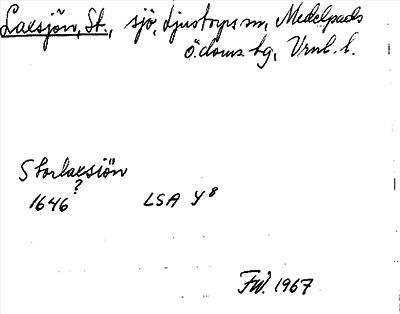 Laxsjön, St., sjö, Ljustorps sn, Medelpads
ö. doms hg, Vrnl. l.
Storlaxsiön
?
1646 LSA Y 8
FW. 1967